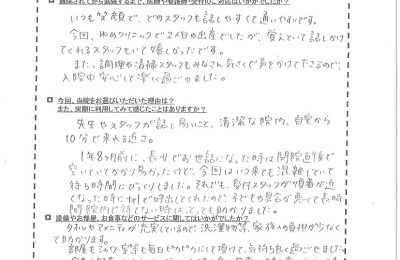 ■ 通院されてから退院するまで、医師や看護師・受付の、ご対応はいかがでしたか？
いつも笑顔で、どのスタッフも話しやすくて通いやすいです。
今回、ゆめクリニックで2人目の出産でしたが、覚えていて話しかけ
てくれるスタッフもいて嬉しかったです。
また、調理や清掃スタッフもみなさん気さくで声をかけて下さるので、
入院中安心して楽しく過ごせました。
■ 今回、当院をお選びいただいた理由は？
また、実際に利用してみて感じたことはありますか？
先生やスタッフが話し易いこと、清潔な院内、自宅から
10分で来れる近さ。
1年8ヶ月前に、長女でお世話になった時は開院直後で
空いていてかなり易かったけど、今回はいつ来ても混雑していて
待ち時間にびっくりしました。それでも、受付スタッフが順番が近く
なった時にtelで呼出してくれたので、子どもの具合が悪くて長時
間院内で待てない時は、とっても助かりました。
■ 設備やお部屋、お食事などのサービスに関してはいかがでしたか？
タオルやアメニティが充実しているので、洗濯物等、家族の負担が少なく
て助かります。
部屋もシャワー室等も毎日ピカピカにして頂けて、気持ち良く過ごせました。